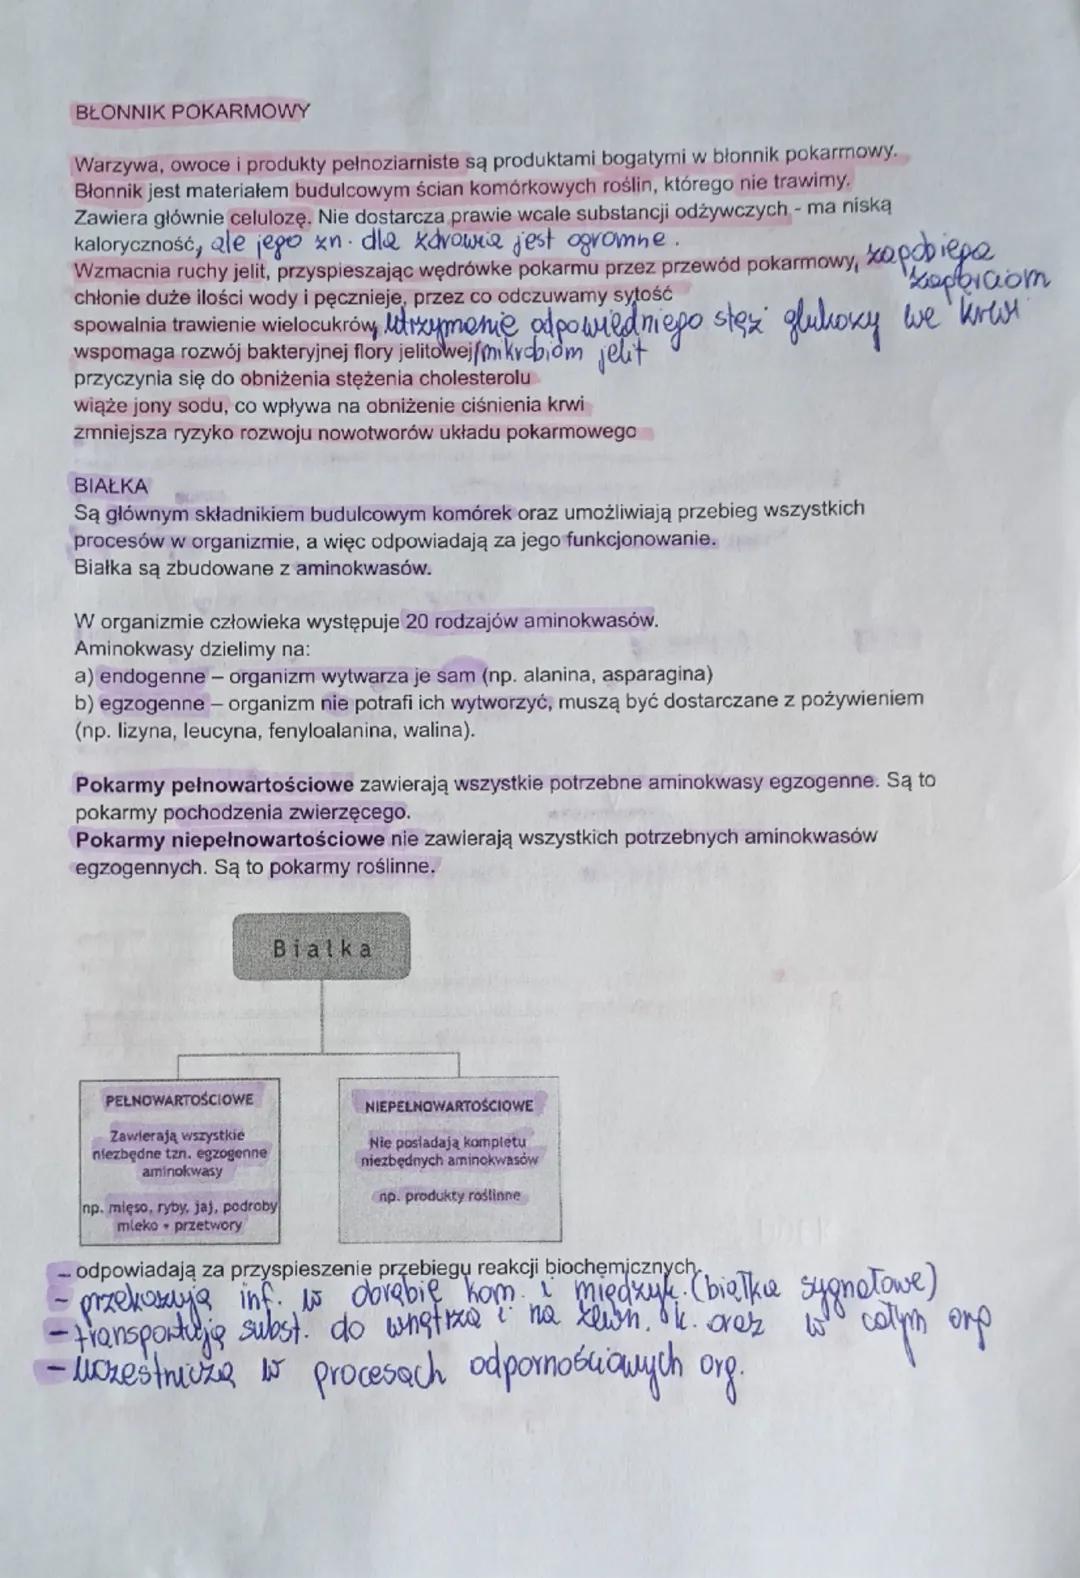 BŁONNIK POKARMOWY
Warzywa, owoce i produkty pełnoziarniste są produktami bogatymi w błonnik pokarmowy.
Błonnik jest materiałem budulcowym ścian komórkowych roślin, którego nie trawimy.
Zawiera głównie celulozę. Nie dostarcza prawie wcale substancji odżywczych - ma niską
kaloryczność, ale jego zn. dla zdrowia jest ogromne.
Wzmacnia ruchy jelit, przyspieszając wędrówke pokarmu przez przewód pokarmowy, zapobiega
zaparciom
chłonie duże ilości wody i pęcznieje, przez co odczuwamy sytość
spowalnia trawienie wielocukrów, utrzymanie odpowiedniego stęż glukozy we krwi
wspomaga rozwój bakteryjnej flory jelitowej/mikrobiom jelit
przyczynia się do obniżenia stężenia cholesterolu
wiąże jony sodu, co wpływa na obniżenie ciśnienia krwi
zmniejsza ryzyko rozwoju nowotworów układu pokarmowego
BIAŁKA
Są głównym składnikiem budulcowym komórek oraz umożliwiają przebieg wszystkich
procesów w organizmie, a więc odpowiadają za jego funkcjonowanie.
Białka są zbudowane z aminokwasów.
W organizmie człowieka występuje 20 rodzajów aminokwasów.
Aminokwasy dzielimy na:
a) endogenne – organizm wytwarza je sam (np. alanina, asparagina)
b) egzogenne – organizm nie potrafi ich wytworzyć, muszą być dostarczane z pożywieniem
(np. lizyna, leucyna, fenyloalanina, walina).
Pokarmy pełnowartościowe zawierają wszystkie potrzebne aminokwasy egzogenne. Są to
pokarmy pochodzenia zwierzęcego.
Pokarmy niepełnowartościowe nie zawierają wszystkich potrzebnych aminokwasów
egzogennych. Są to pokarmy roślinne.
Białka
PEŁNOWARTOŚCIOWE
Zawierają wszystkie
niezbędne tzn. egzogenne
aminokwasy
np. mięso, ryby, jaj, podroby
mleko + przetwory
NIEPEŁNOWARTOŚCIOWE
Nie posiadają kompletu
niezbędnych aminokwasów
np. produkty roślinne
- odpowiadają za przyspieszenie przebiegu reakcji biochemicznych.
- przekazują inf. w obrębie kom. i międzyk. (białka sygnałowe)
- transportują subst. do wnętrza i na zewn. k. oraz w całym org
- uczestniczą w procesach odpornościowych org.